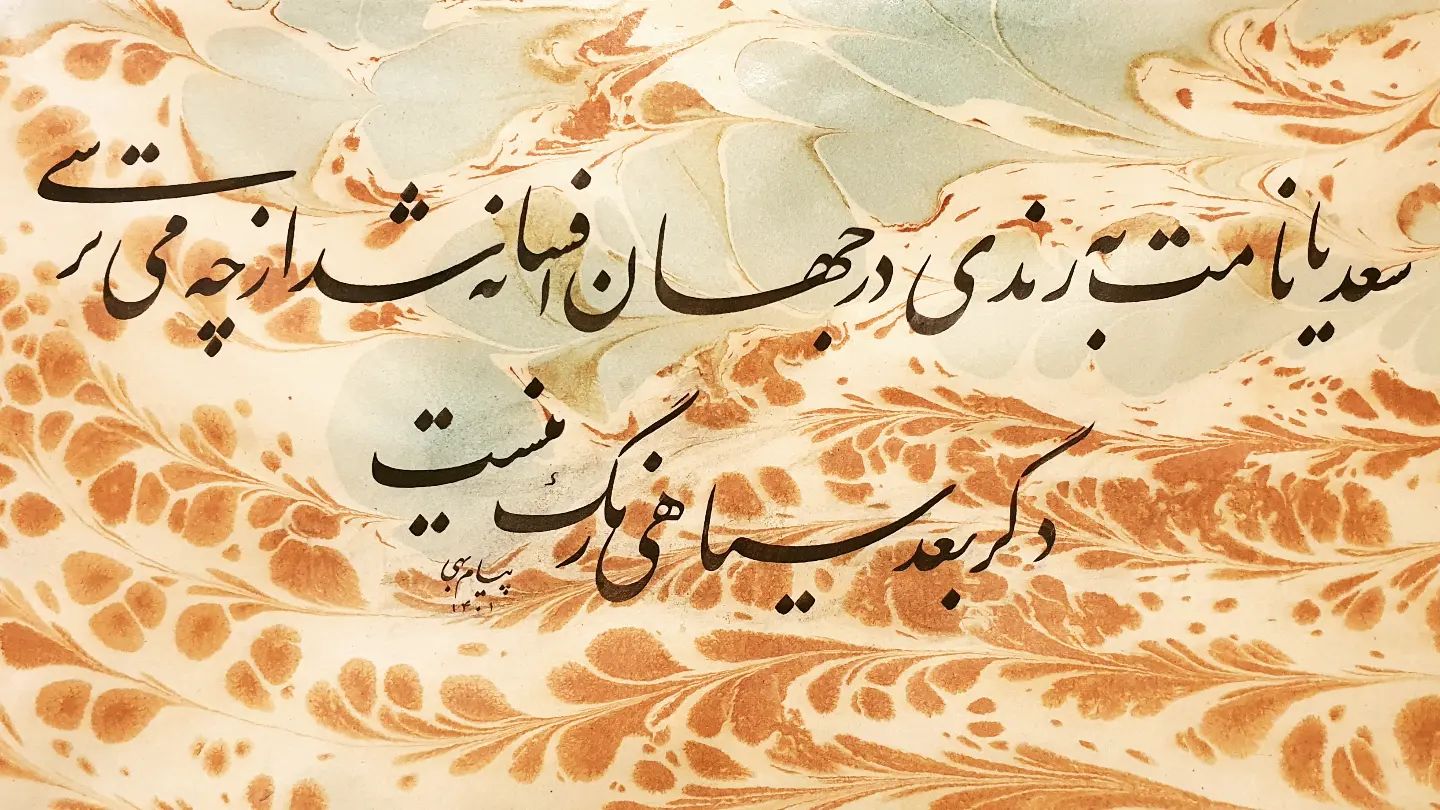 سعدیا نامت به رندی در جهان افسانه شد از چه می ترسی
دگر بعد سیاهی رنگ نیست
پیام بهی
۱۴۰۱